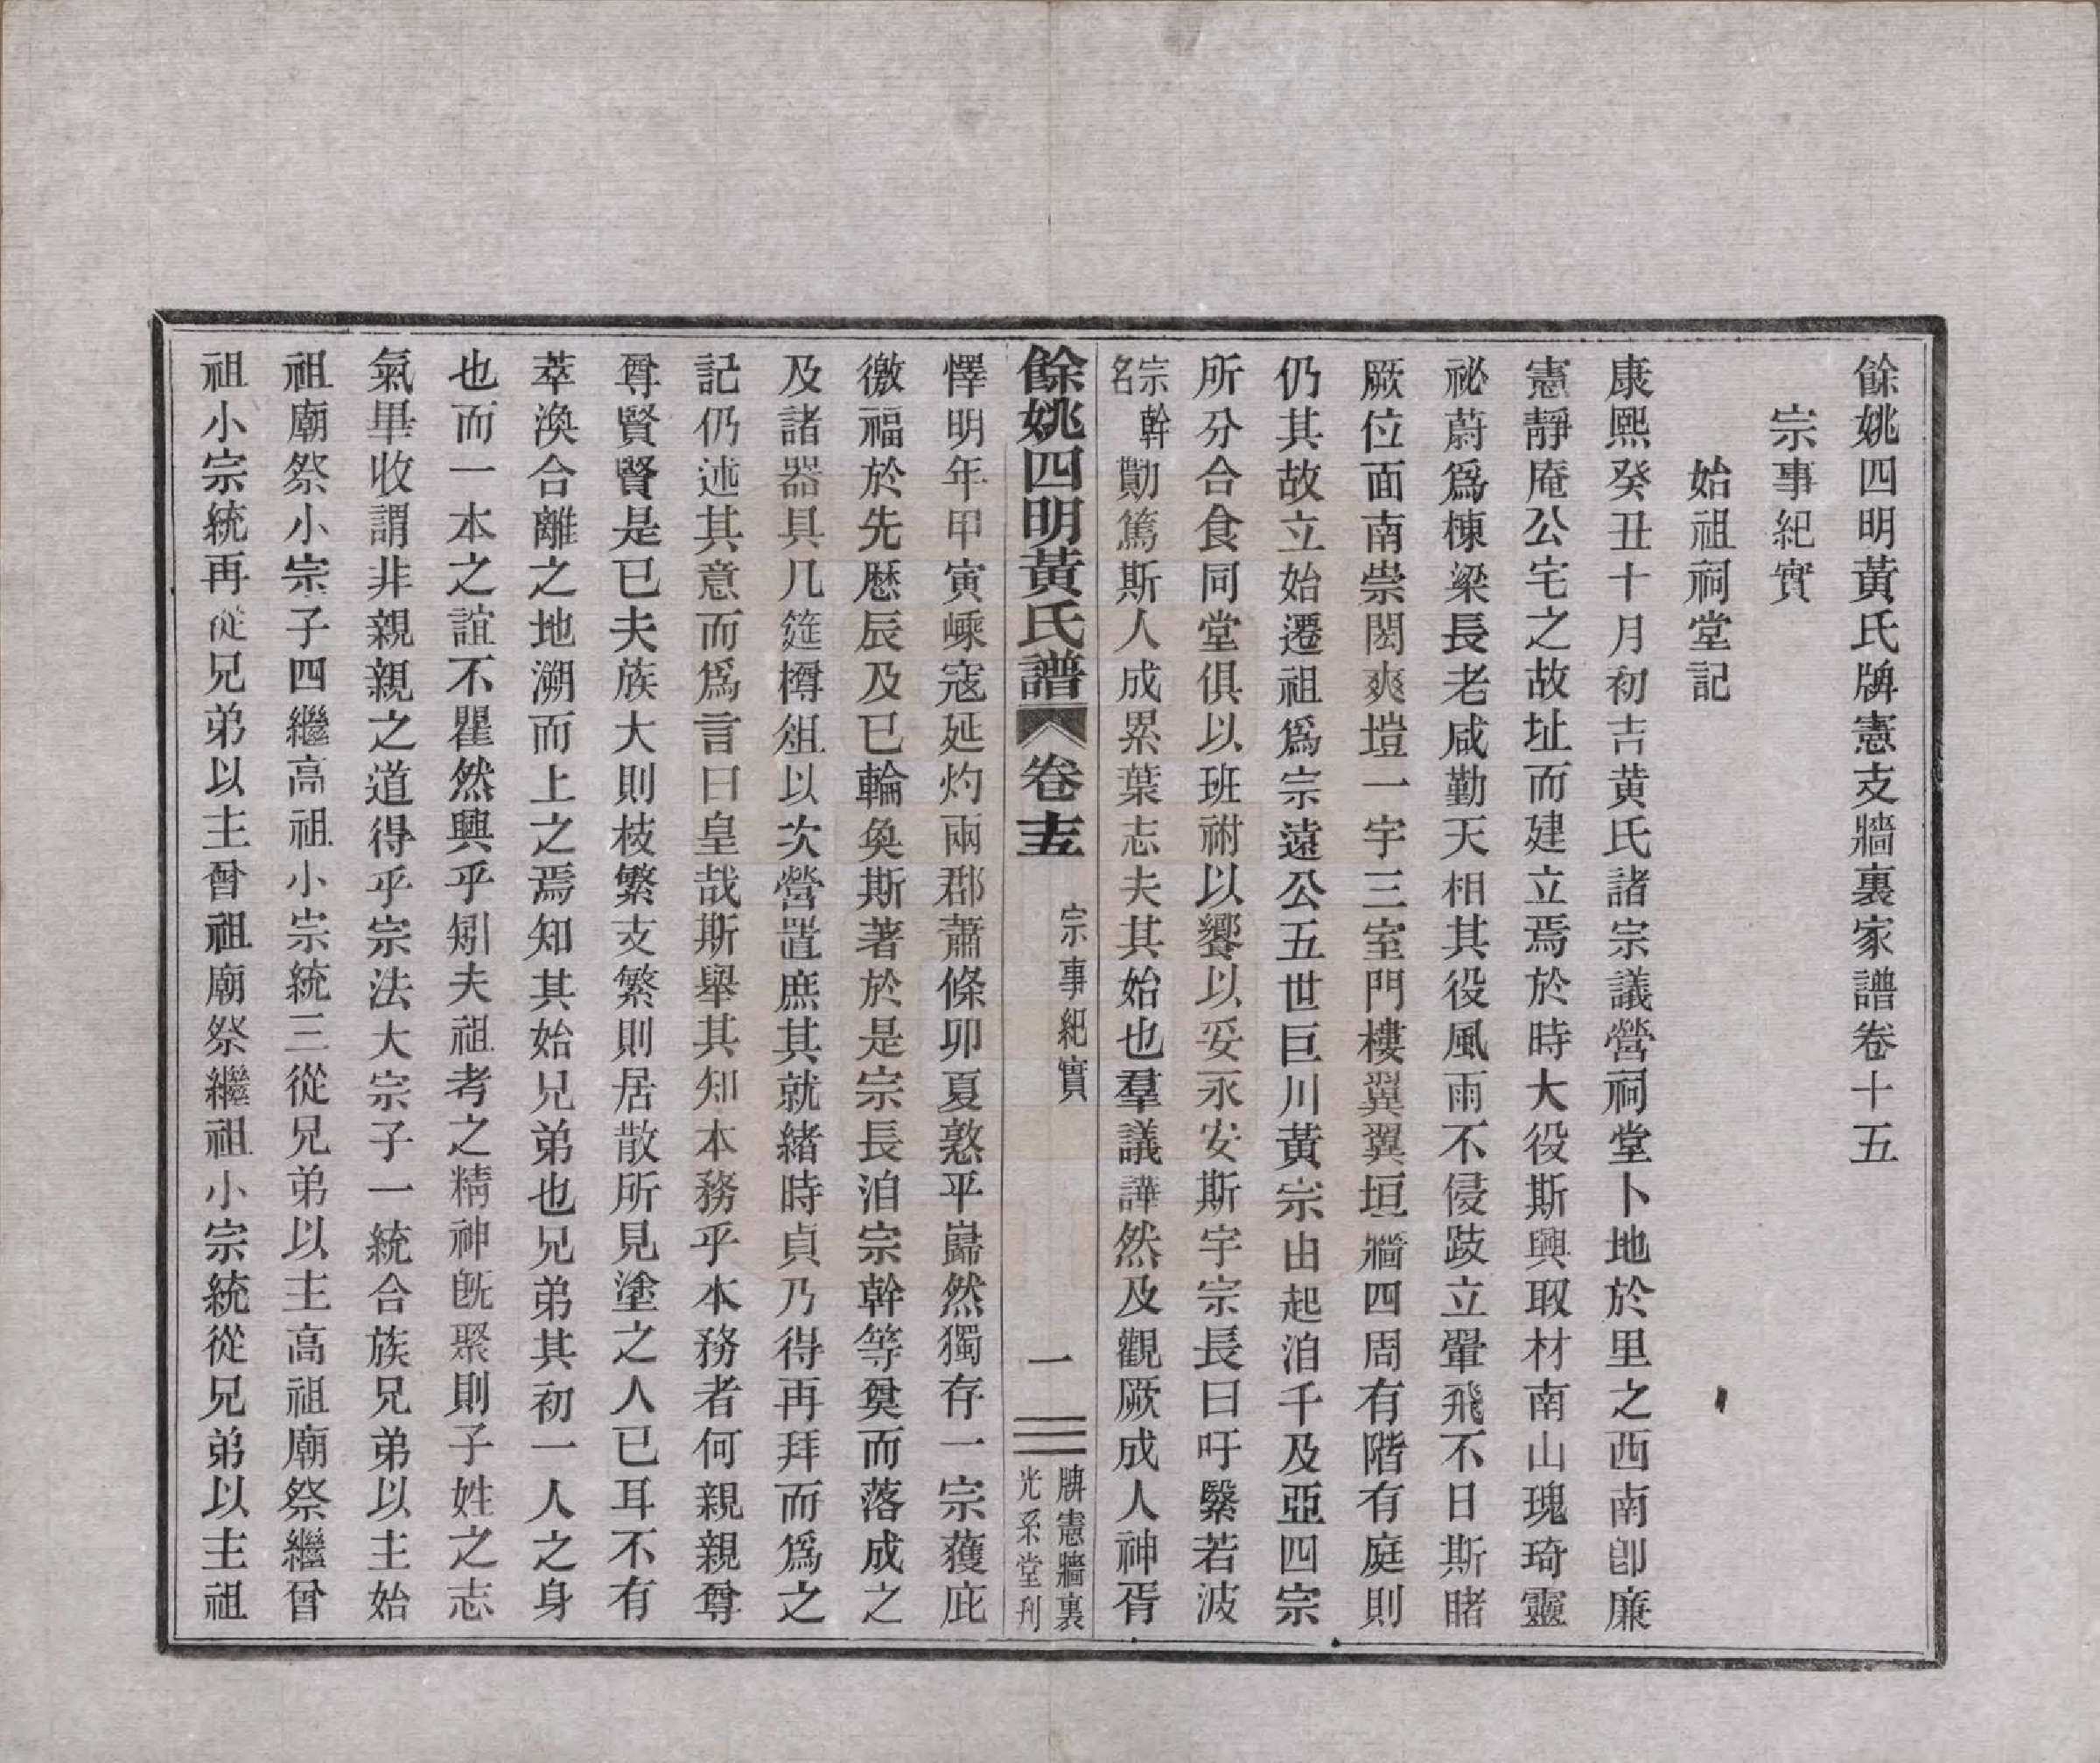 餘姚四明黃氏牌憲支牆裏家譜卷十五
宗事紀實
始祖祠堂記
康熙癸丑十月初吉黄氏諸宗議營祠堂卜地於里之西南卽廉
憲靜庵公宅之故址而建立焉於時大役斯興取材南山瑰琦靈
祕蔚爲棟梁長老咸勤天相其役風雨不侵跂立翬飛不日斯睹
厥位面南崇閎爽塏一宇三室門樓翼翼垣牆四周有階有庭則
仍其故立始遷祖爲宗遠公五世巨川黃宗由起洎千及亞四宗
所分合食同堂俱以班祔以饗以妥永安斯宇宗長曰吁緊若波
宗幹名勩篤斯人成累葉志夫其始也羣議譁然及觀厥成人神胥
餘姚四明黃氏譜 卷十五 宗事紀實 一 牌憲牆裏 光系堂刋
懌明年甲寅嵊寇延灼兩郡蕭條卯夏憝平巋然獨存一宗獲庇
徼福於先厯辰及巳輪奐斯著於是宗長洎宗幹等奠而落成之
及諸器具几筵樽俎以次營置庶其就緒時貞乃得再拜而爲之
記仍述其意而爲言曰皇哉斯舉其知本務乎本務者何親親尊
尊賢賢是已夫族大則枝繁支繁則居散所見塗之人已耳不有
萃渙合離之地溯而上之焉知其始兄弟也兄弟其初一人之身
也而一本之誼不瞿然興乎矧夫祖考之精神旣聚則子姓之志
氣畢收謂非親親之道得乎宗法大宗子一統合族兄弟以主始
祖廟祭小宗子四繼高祖小宗統三從兄弟以主高祖廟祭繼曾
祖小宗統再從兄弟以主曾祖廟祭繼祖小宗統從兄弟以主祖